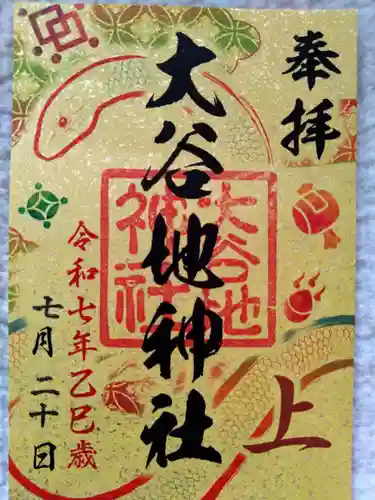 奉拝
大谷地神社
大谷地
神社
上
令和七年乙巳歳
七月二十日